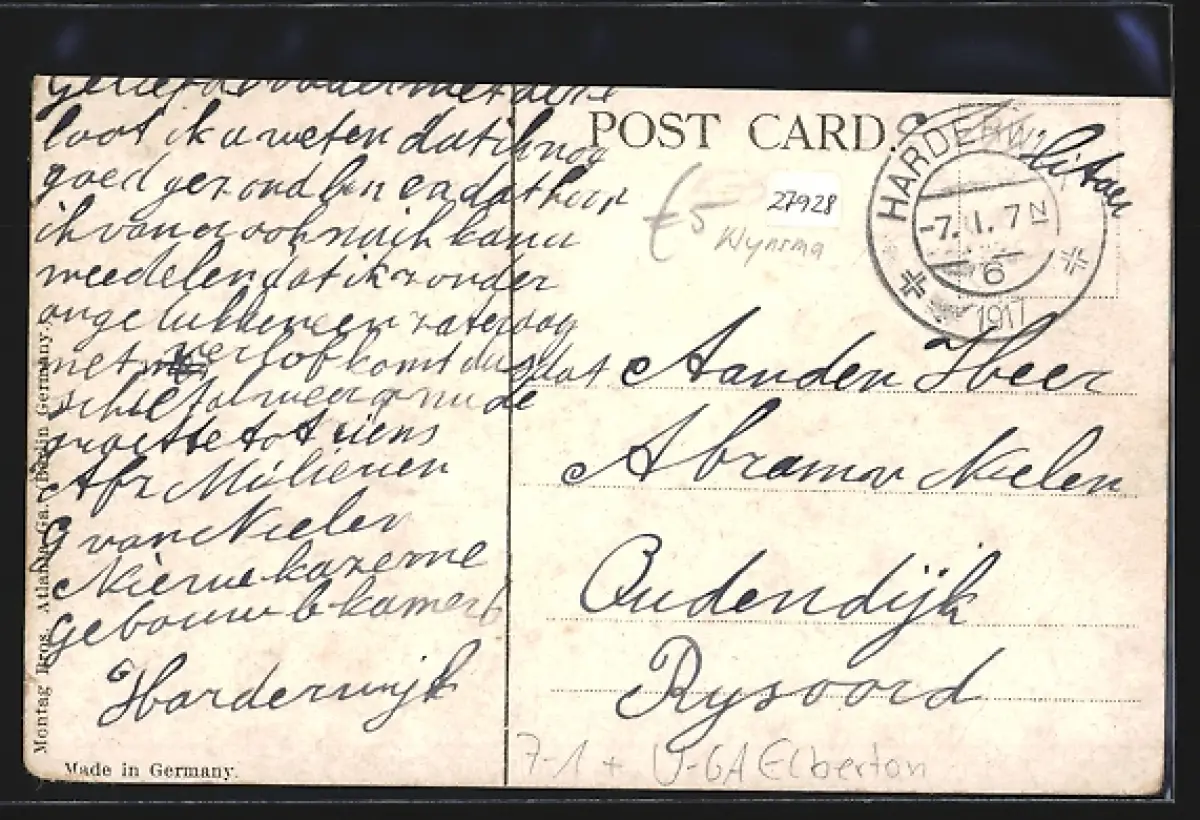 Geliefde ouders met deze
loot ik u weten dat ik nog
goed gezond ben en dat hoop
ik van u ook nu ik kan u
meedelen dat ik zonder
ongelukken een zaterdag
met verlof komt dus dat
schiet al weer op nu de
groette tot ziens
Afz Milicien
G van Nielen
Nieuwe kazerne
gebouw b kamer 6
Harderwijk
POST CARD.
Militair
HARDERWIJK
-7.1.7N
6
1917
£5
27928
Wynrma
Aan den Heer
Abram v Nielen
Oudendijk
Rysoord
7-1 + U-GA Elberton
Montag Bros. Atlanta Ga. / Berlin Germany.
Made in Germany.